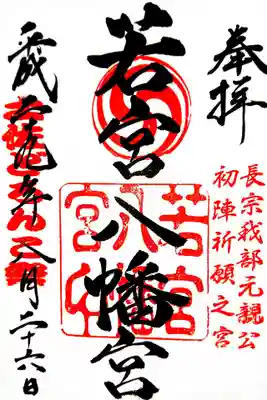 奉拝
長宗我部元親公
初陣祈願之宮
若宮八幡宮
若宮
八幡
宮印
平成二九年八月二十六日